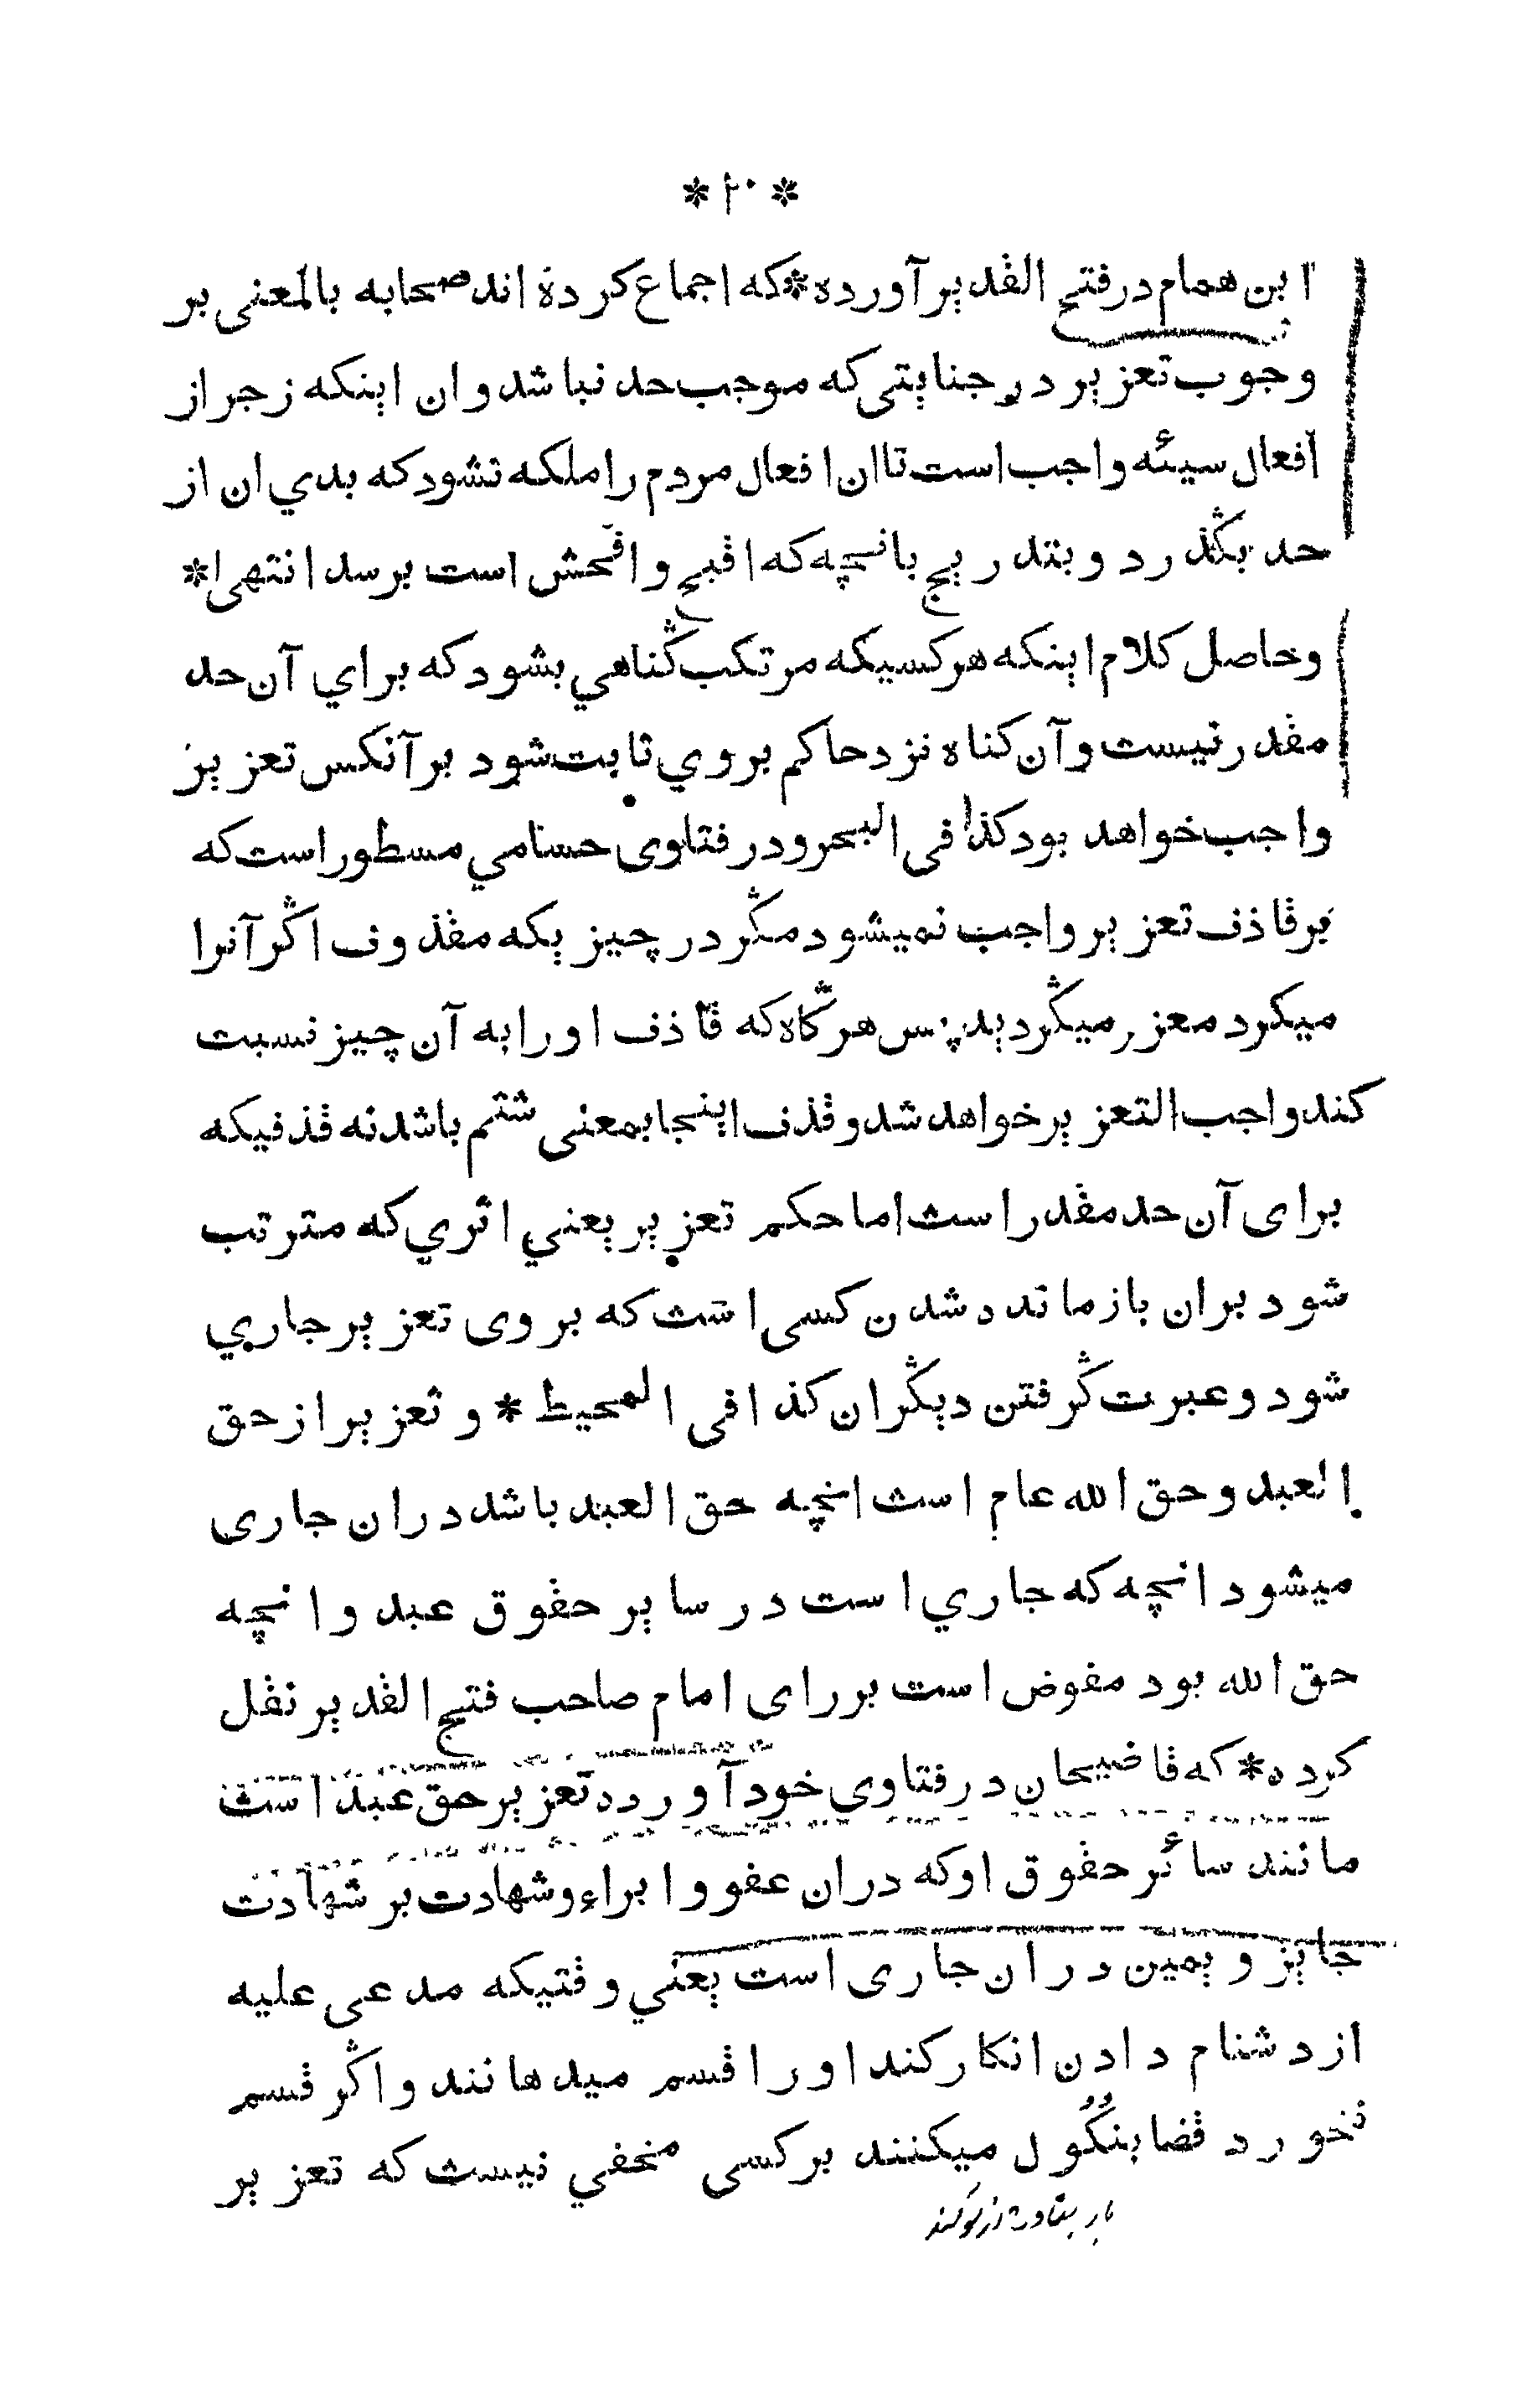 * ۲۰ *
ابن همام در فتح القدیر آورده * که اجماع کرده اند صحابه بالمعنی بر
وجوب تعزیر در جنایتی که موجب حد نباشد و ان اینکه زجر از
افعال سیئه واجب است تا ان افعال مردم را ملکه نشود که بدي ان از
حد بگذرد و بتدریج بانچه که اقبح و افحش است برسد انتهی *
و حاصل کلام اینکه هر کسیکه مرتکب گناهي بشود که براي آن حد
مقدر نیست و آن کناه نزد حاکم بر وي ثابت شود بر آنکس تعزیر
واجب خواهد بود کذا فی البحر و در فتاوی حسامي مسطور است که
بر قاذف تعزیر واجب نمیشود مگر در چیزیکه مقذوف اگر آنرا
میکرد معزر میگردید پس هرگاه که قاذف او را به آن چیز نسبت
کند واجب التعزیر خواهد شد و قذف اینجا بمعنی شتم باشد نه قذفیکه
برای آن حد مقدر است اما حکم تعزیر یعني اثري که مترتب
شود بران بازمانده شدن کسی است که بر وی تعزیر جاري
شود و عبرت گرفتن دیگران کذا فی المحیط * و تعزیر از حق
العبد و حق الله عام است انچه حق العبد باشد دران جاری
میشود انچه که جاري است در سایر حقوق عبد و انچه
حق الله بود مفوض است بر رای امام صاحب فتح القدیر نقل
کرده * که قاضیخان در فتاوی خود آورده تعزیر حق عبد است
مانند سائر حقوق او که دران عفو و ابراء و شهادت بر شهادت
جایز و یمین دران جاری است یعني وقتیکه مدعی علیه
از دشنام دادن انکار کند او را قسم میدهانند و اگر قسم
نخورد قضا بنکول میکنند بر کسی مخفي نیست که تعزیر